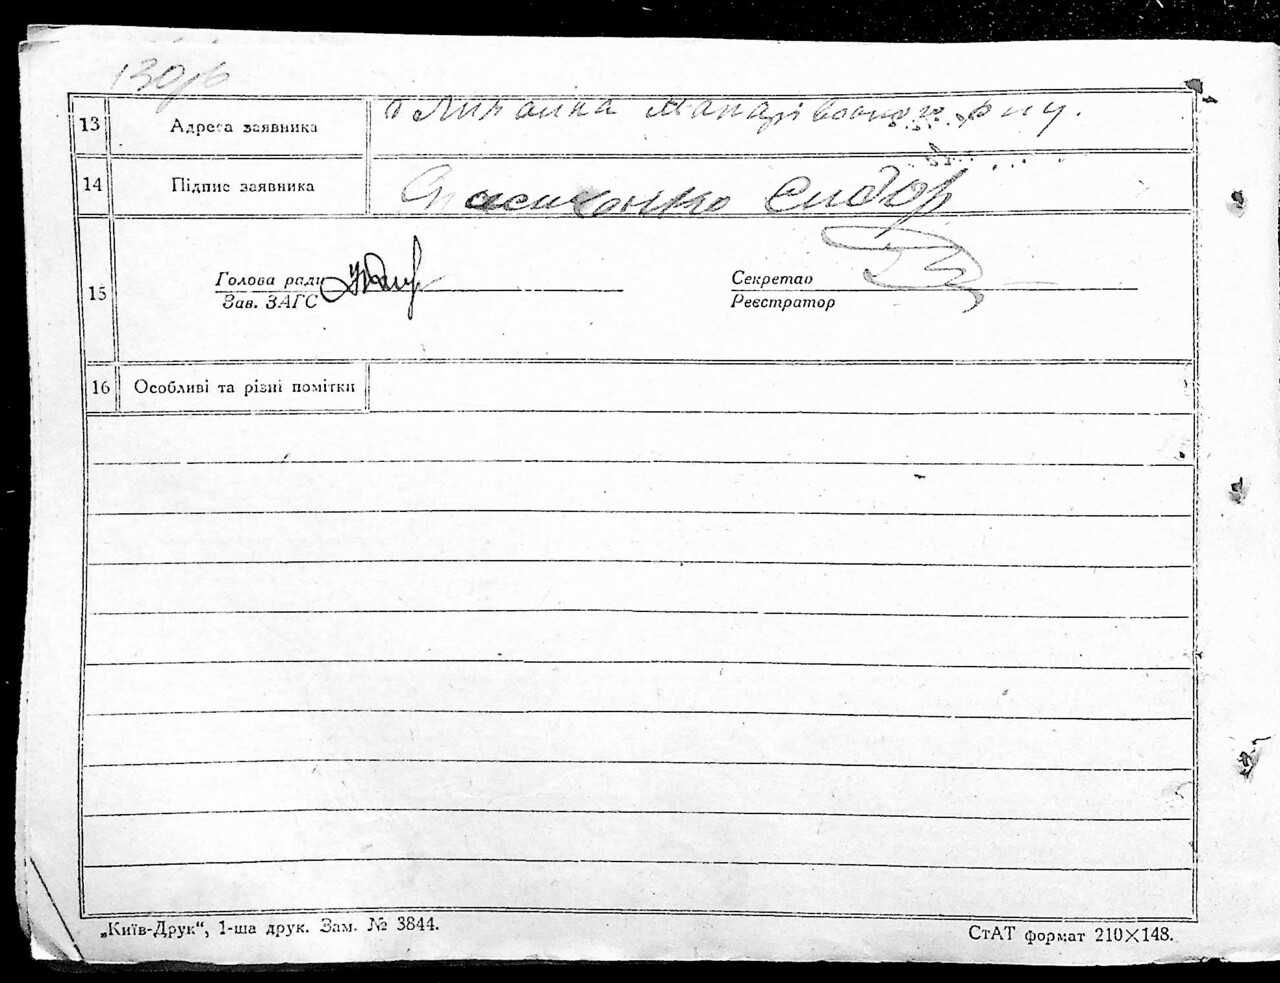 130 зв
13 Адреса заявника с Липівка Макарівського р-ну.
14 Підпис заявника Пасиченко Сидор
15 Голова ради Секретар
Зав. ЗАГС Реєстратор
16 Особливі та різні помітки
„Київ-Друк“, 1-ша друк. Зам. № 3844. СтАТ формат 210×148.